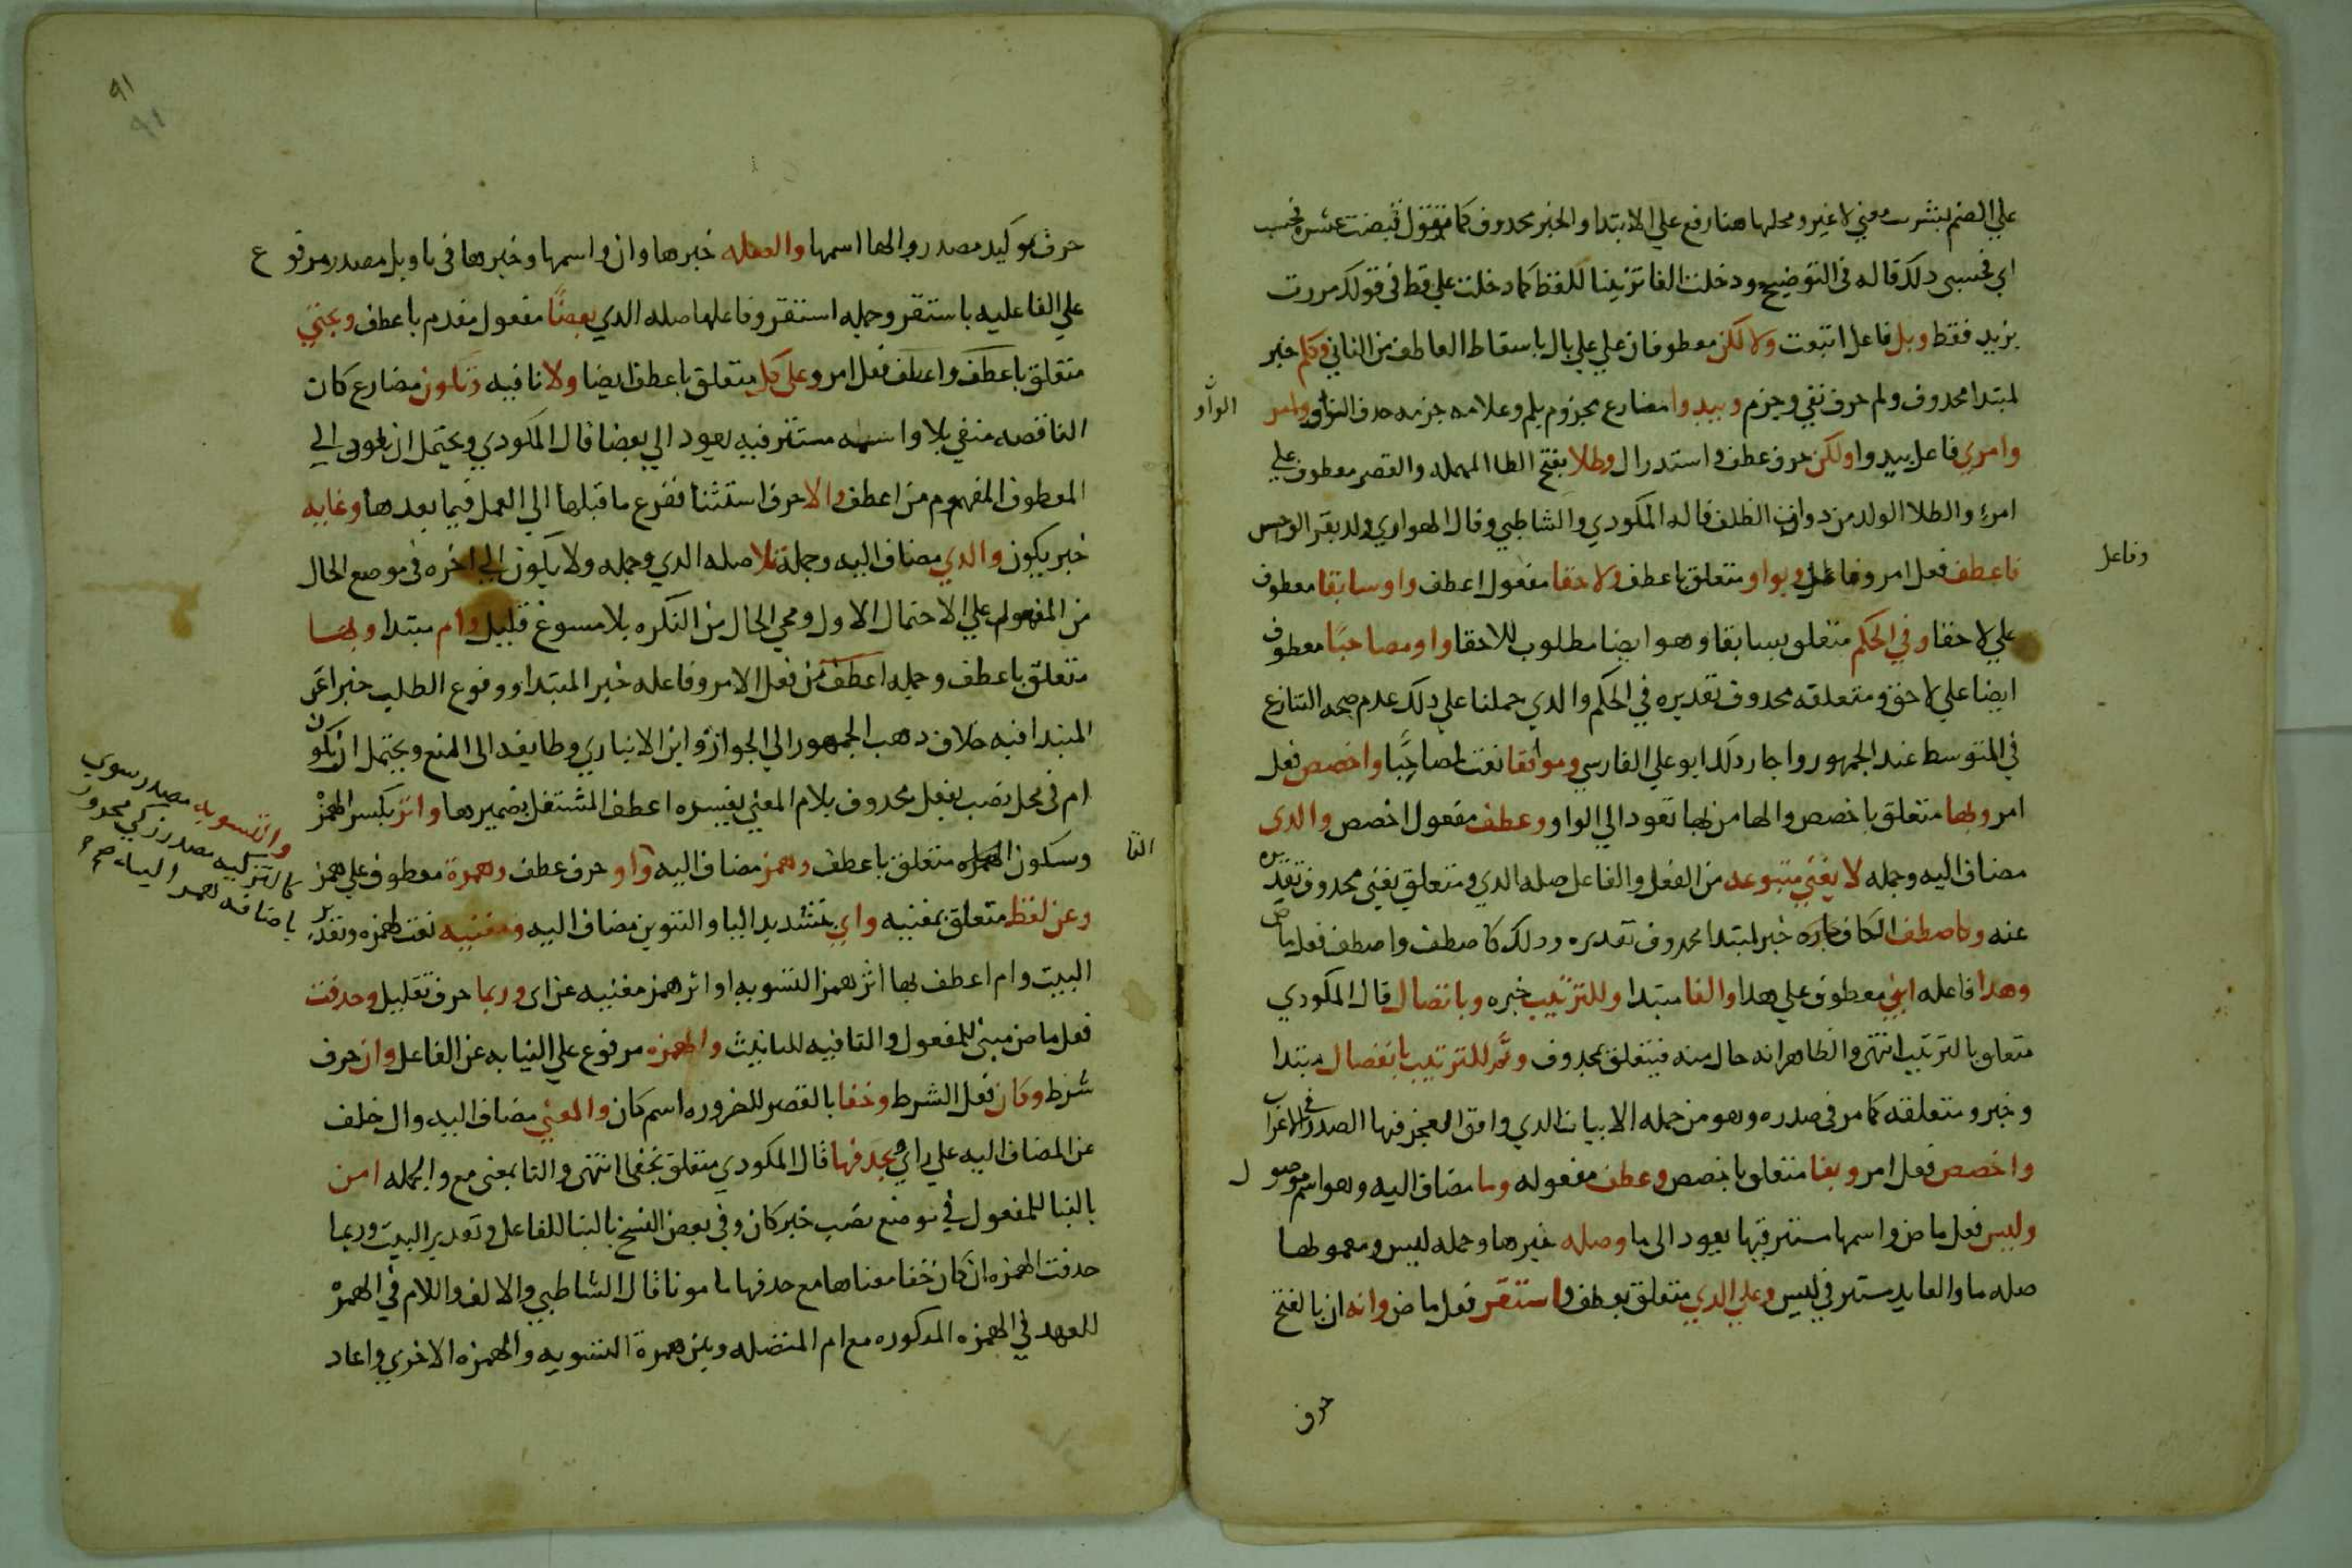 علي الضم لنشرب معني لا غير ومحلها هنا رفع علي الابتدا والخبر محدوف كما تقول قبضت عشره فحسب
اي فحسبي دلك قاله في التوضيح ودخلت الفا تزيينا للفظ كما دخلت علي قط في قولك مررت
بزيد فقط وبل فاعل اتبعت ولا لكن معطوفان علي علي بل باسقاط العاطف من الثاني وكلم خبر
لمبتدا محدوف ولم حرف نفي وجزم ويبدوا مضارع مجزوم بلم وعلامه جزمه حدف الواو
الواو
وامري فاعل يبدوا ولكن حرف عطف واستدراك وطلا بفتح الطا المهمله والقصر معطوف علي
امرء والطلا الولد من دوات الظلف قاله المكودي والشاطبي وقال الهواري ولد بقر الوحش
فاعطف فعل امر وفاعل وبواو متعلق باعطف ولاحقا مفعول اعطف واوسابقا معطوف
وفاعل
علي لاحقا وفي الحكم متعلق بسابقا وهو ايضا مطلوب للاحقا واومصاحبًا معطوف
ايضا علي لاحق ومتعلقه محدوف تقديره في الحكم والدي حملنا علي دلك عدم صحه التنازع
في المتوسط عند الجمهور واجاز دلك ابو علي الفارسي وموافقا نعت لمصاحبًا واخصص فعل
امر وبها متعلق باخصص والها من بها تعود الي الواو وعطف مفعول اخصص والدي
مضاف اليه وجمله لا يغني متبوعه من الفعل والفاعل صله الدي ومتعلق يغني محدوف تقديره
عنه وكاصطف الكاف جاره خبر لمبتدا محدوف تقديره ودلك كاصطف واصطف فعل ماض
وهدا فاعله ابني معطوف علي هدا والفا مبتدا وللترتيب خبره وباتصال قال المكودي
متعلق بالترتيب انتهي والظاهر انه حال منه فيتعلق بمحدوف وثم للترتيب بانفصال مبتدا
وخبر ومتعلقه كما مر في صدره وهو من جمله الابيات الدي وافق العجز فيها الصدر في الاعراب
واخصص فعل امر وبفا متعلق باخصص وعطف مفعوله وما مضاف اليه وهو اسم موصول
وليس فعل ماض واسمها مستتر فيها يعود الي ما وصله خبرها وجمله ليس ومعمولها
صله ما والعايد مستتر في ليس وعلي الدي متعلق بعطف واستقر فعل ماض وانه ان بالفتح
حرف
٩١
٩١
حرف توكيد مصدر والها اسمها والصله خبرها وان واسمها وخبرها في تاويل مصدر مرفوع
علي الفاعليه باستقر وجمله استقر وفاعلها صله الدي بعضًا مفعول مقدم باعطف وبحتي
متعلق باعطف واعطف فعل امر وعلي كل متعلق باعطف ايضا ولا نافيه ويكون مضارع كان
الناقصه منفي بلا واسمه مستتر فيه يعود الي بعضا قال المكودي ويحتمل ان يعود الي
المعطوف المفهوم من اعطف والا حرف استثنا ففرع ما قبلها الي العمل فيما بعدها وغايه
خبر يكون والدي مضاف اليه وجملة تلا صله الدي وجمله ولا يكون الي اخره في موضع الحال
من المفعول علي الاحتمال الاول ومجي الحال من النكره بلا مسوغ قليل وام مبتدا وبها
متعلق باعطف وجمله اعطف من فعل الامر وفاعله خبر المبتدا ووقوع الطلب خبرا عن
المبتدا فيه خلاف دهب الجمهور الي الجواز وابن الانباري وطايفه الي المنع ويحتمل ان تكون
ام في محل نصب بفعل محدوف بلام المعني يفسره اعطف المشتغل بضميرها واثر بكسر الهمز
وسكون متعلق باعطف وهمز مضاف اليه واو حرف عطف وهمزة معطوف علي همز
الثا
والتسويه مصدر سوي
كالتزكيه مصدر زكي مجرور
باضافه همز اليه صح
وعن لفظ متعلق بمغنيه واي بتشديد اليا والتنوين مضاف اليه ومغنيه نعت لهمزه وتقدير
البيت وام اعطف بها اثر همز التسويه او اثر همز مغنيه عن اى وربما حرف تقليل وحدفت
فعل ماض مبني للمفعول والتا فيه للتانيث والهمزه مرفوع علي النيابه عن الفاعل وان حرف
شرط وكان فعل الشرط وخفا بالقصر للضروره اسم كان والمعني مضاف اليه وال خلف
عن المضاف اليه علي راي وبحدفها قال المكودي متعلق بخفى انتهى والتا بمعنى مع والجمله امن
بالبنا للمفعول في موضع نصب خبر كان وفي بعض النسخ بالبنا للفاعل وتقدير البيت وربما
حدفت الهمزه ان كان خفا معناها مع حدفها مامونا قال الشاطبي والالف واللام في الهمز
للعهد في الهمزه المدكوره مع ام المتصله وبين همزة التسويه والهمزه الاخري واعاد